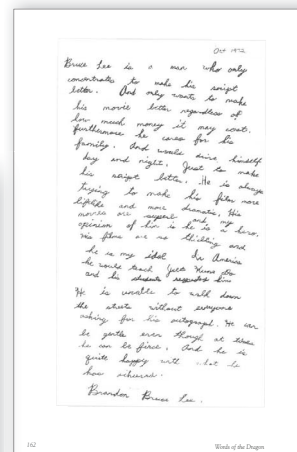 Oct 1972
Bruce Lee is a man who only
concentrates to make his script
better. And only wants to make
his movie better regardless of
how much money it may cost.
furthermore he cares for his
family. And would drive himself
day and night. Just to make
his script better. He is always
trying to make his films more
lifelike and more dramatic. His
movies are superb and my
opinion of him is he is a hero.
his films are so thrilling and
he is my idol. In America
he would teach Jeet Kune Do
and his students respected him
He is unable to walk down
the streets without everyone
asking for his autograph. He can
be gentle even though at times
he can be fierce. And he is
quite happy with what he
has achieved.
Brandon Bruce Lee.
162
Words of the Dragon